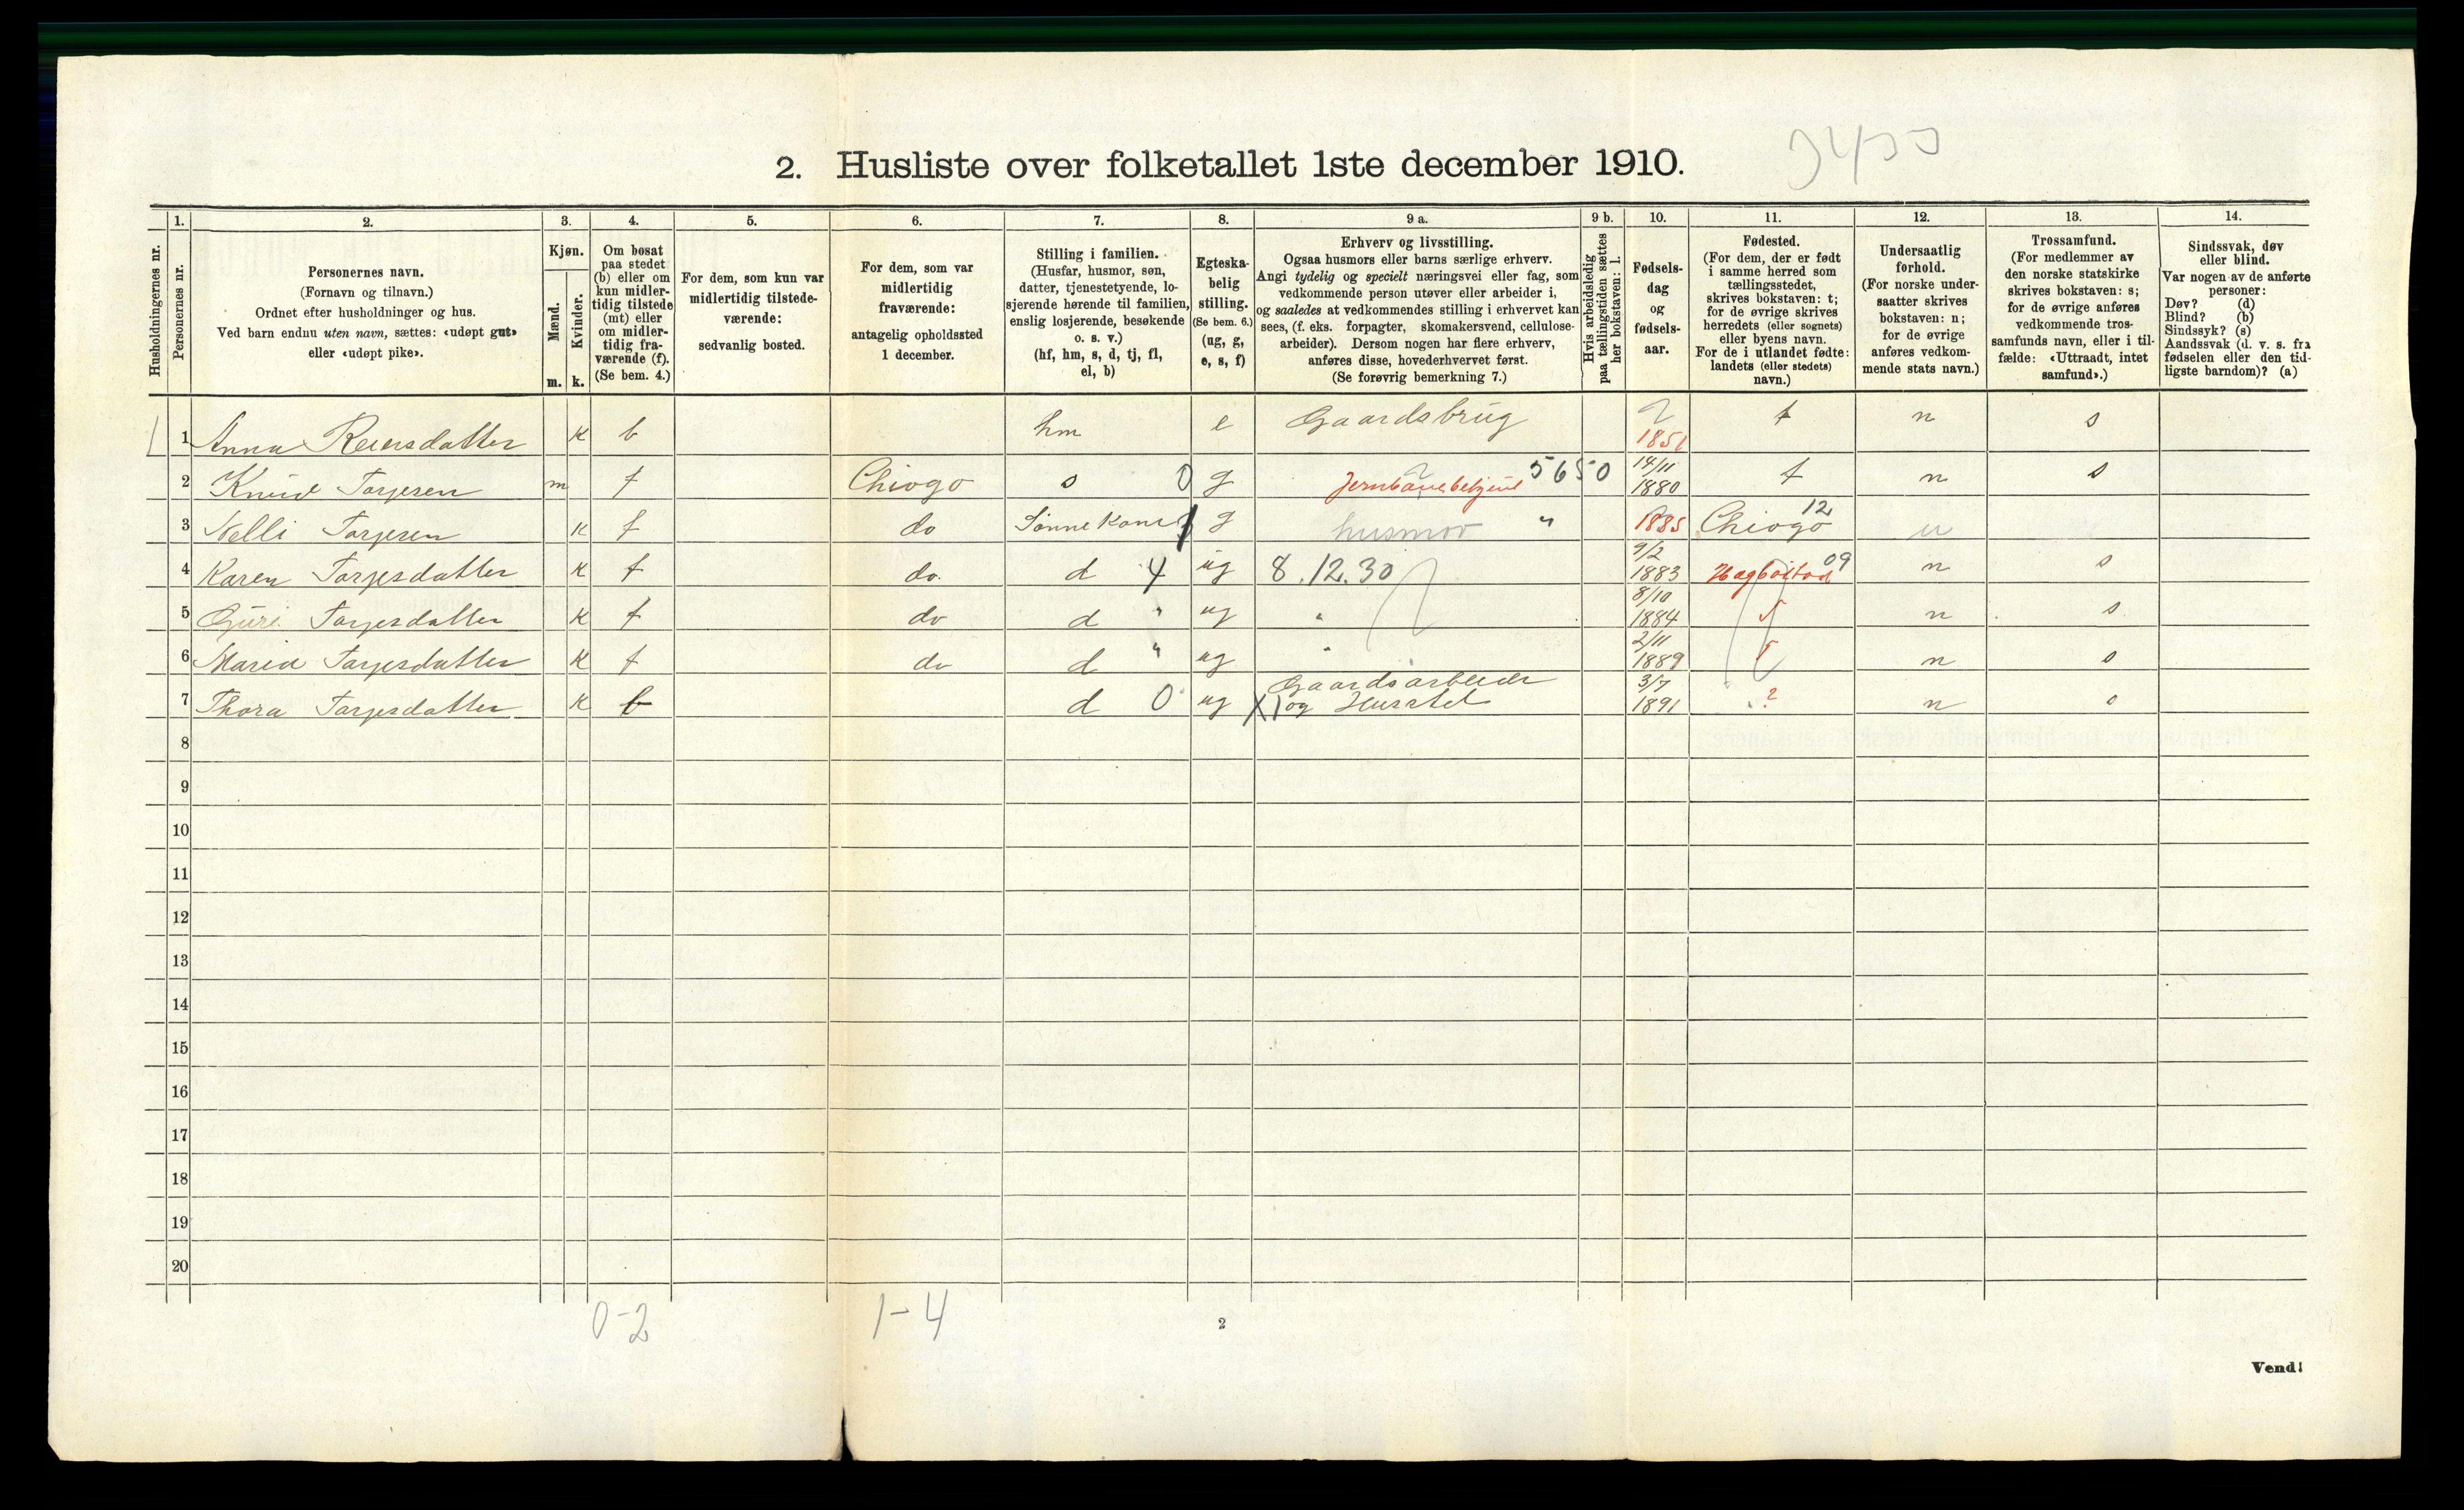 2. Husliste over folketallet 1ste december 1910.
Husholdningernes nr.
1.
Personernes nr.
2.
Personernes navn.
(Fornavn og tilnavn.)
Ordnet efter husholdninger og hus.
Ved barn endnu uten navn, sættes: «udøpt gut»
eller «udøpt pike».
3.
Kjøn.
Mænd.
Kvinder.
m. k.
4.
Om bosat
paa stedet
(b) eller om
kun midler-
tidig tilstede
(mt) eller
om midler-
tidig fra-
værende (f).
(Se bem. 4.)
5.
For dem, som kun var
midlertidig tilstede-
værende:
sedvanlig bosted.
6.
For dem, som var
midlertidig
fraværende:
antagelig opholdssted
1 december.
7.
Stilling i familien.
(Husfar, husmor, søn,
datter, tjenestetyende, lo-
sjerende hørende til familien,
enslig losjerende, besøkende
o. s. v.)
(hf, hm, s, d, tj, fl,
el, b)
8.
Egteska-
belig
stilling.
(Se bem. 6.)
(ug, g,
e, s, f)
9 a.
Erhverv og livsstilling.
Ogsaa husmors eller barns særlige erhverv.
Angi tydelig og specielt næringsvei eller fag, som
vedkommende person utøver eller arbeider i,
og saaledes at vedkommendes stilling i erhvervet kan
sees, (f. eks. forpagter, skomakersvend, cellulose-
arbeider). Dersom nogen har flere erhverv,
anføres disse, hovederhvervet først.
(Se forøvrig bemerkning 7.)
9 b.
Hvis arbeidsledig
paa tællingstiden sættes
her bokstaven: l.
10.
Fødsels-
dag
og
fødsels-
aar.
11.
Fødested.
(For dem, der er født
i samme herred som
tællingsstedet,
skrives bokstaven: t;
for de øvrige skrives
herredets (eller sognets)
eller byens navn.
For de i utlandet fødte:
landets (eller stedets)
navn.)
12.
Undersaatlig
forhold.
(For norske under-
saatter skrives
bokstaven: n;
for de øvrige
anføres vedkom-
mende stats navn.)
13.
Trossamfund.
(For medlemmer av
den norske statskirke
skrives bokstaven: s;
for de øvrige anføres
vedkommende tros-
samfunds navn, eller i til-
fælde: «Uttraadt, intet
samfund».)
14.
Sindssvak, døv
eller blind.
Var nogen av de anførte
personer:
Døv? (d)
Blind? (b)
Sindssyk? (s)
Aandssvak (d. v. s. fra
fødselen eller den tid-
ligste barndom)? (a)
1 Anna Reiersdatter k b hm e Gaardsbrug 1851 t n s
2 Knud Torjesen m f Chiogo s 0 g Jernbanebetjent 5650 14/11 1880 t n s
3 Nelli Torjesen k f do Sønne Kone g husmor " 1885 Chiogo 12 u
4 Karen Torjesdatter k f do. d 4 ug 8.12.30 9/2 1883 Hægbostad 09 n s
5 Guri Torjesdatter k f do d " ug " 8/10 1884 n s
6 Maria Torjesdatter k f do d " ug " 2/11 1889 n s
7 Thora Torjesdatter k b d 0 ug X1 Gaardsarbeide og Husstel 3/7 1891 ? n s
8
9
10
11
12
13
14
15
16
17
18
19
20
0-2
1-4
2
Vend!